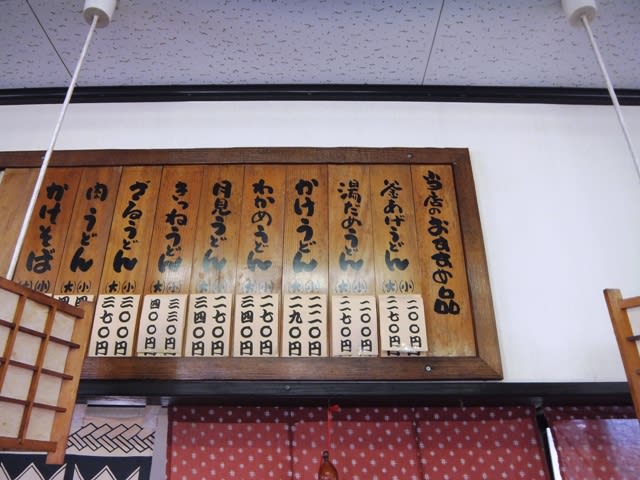 当店のおすすめ品
釜あげうどん
小 二〇〇円
大 二七〇円
湯だめうどん
小 二〇〇円
大 二七〇円
かけうどん
小 二二〇円
大 二九〇円
わかめうどん
小 二七〇円
大 三四〇円
月見うどん
小 二七〇円
大 三四〇円
きつねうどん
小 三三〇円
大 四〇〇円
ざるうどん
小 三〇〇円
大 三七〇円
肉うどん
小
大
かけそば
小
大